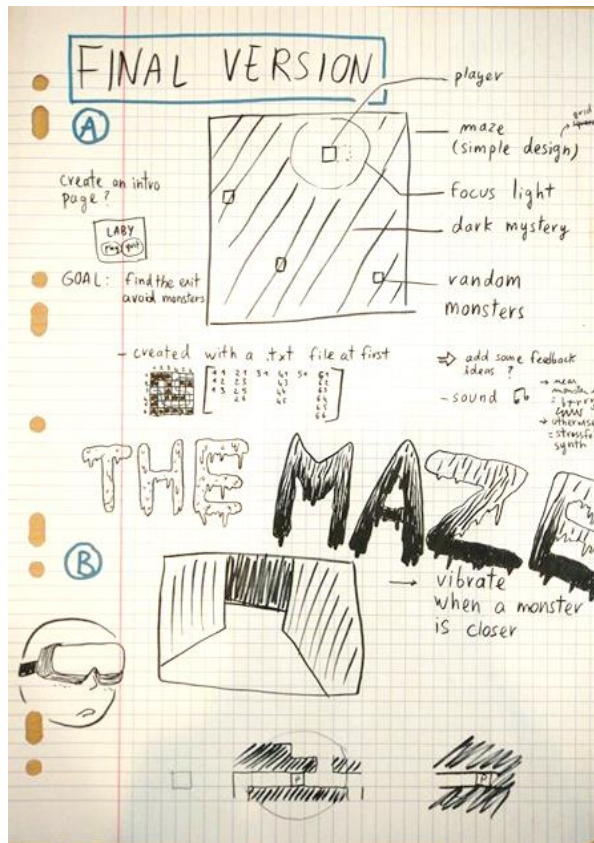 FINAL VERSION
A
player
maze
(simple design)
grid
focus light
dark mystery
random
monsters
create an intro
page?
LABY
play quit
GOAL: find the exit
avoid monsters
- created with a .txt file at first
⇒ add some feedback
ideas ?
- sound
→ near
monster
→ otherwise
= stressful
synth
THE MAZE
B
→ vibrate
when a monster
is closer
P
P